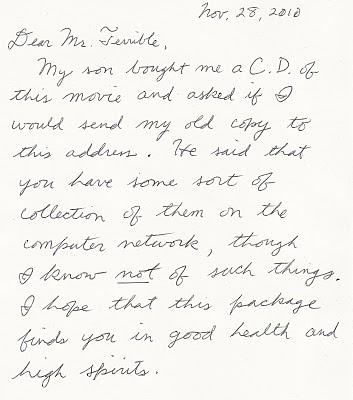 Nov. 28, 2010
Dear Mr. Terrible,
My son bought me a C.D. of
this movie and asked if I
would send my old copy to
this address. He said that
you have some sort of
collection of them on the
computer network, though
I know not of such things.
I hope that this package
finds you in good health and
high spirits.